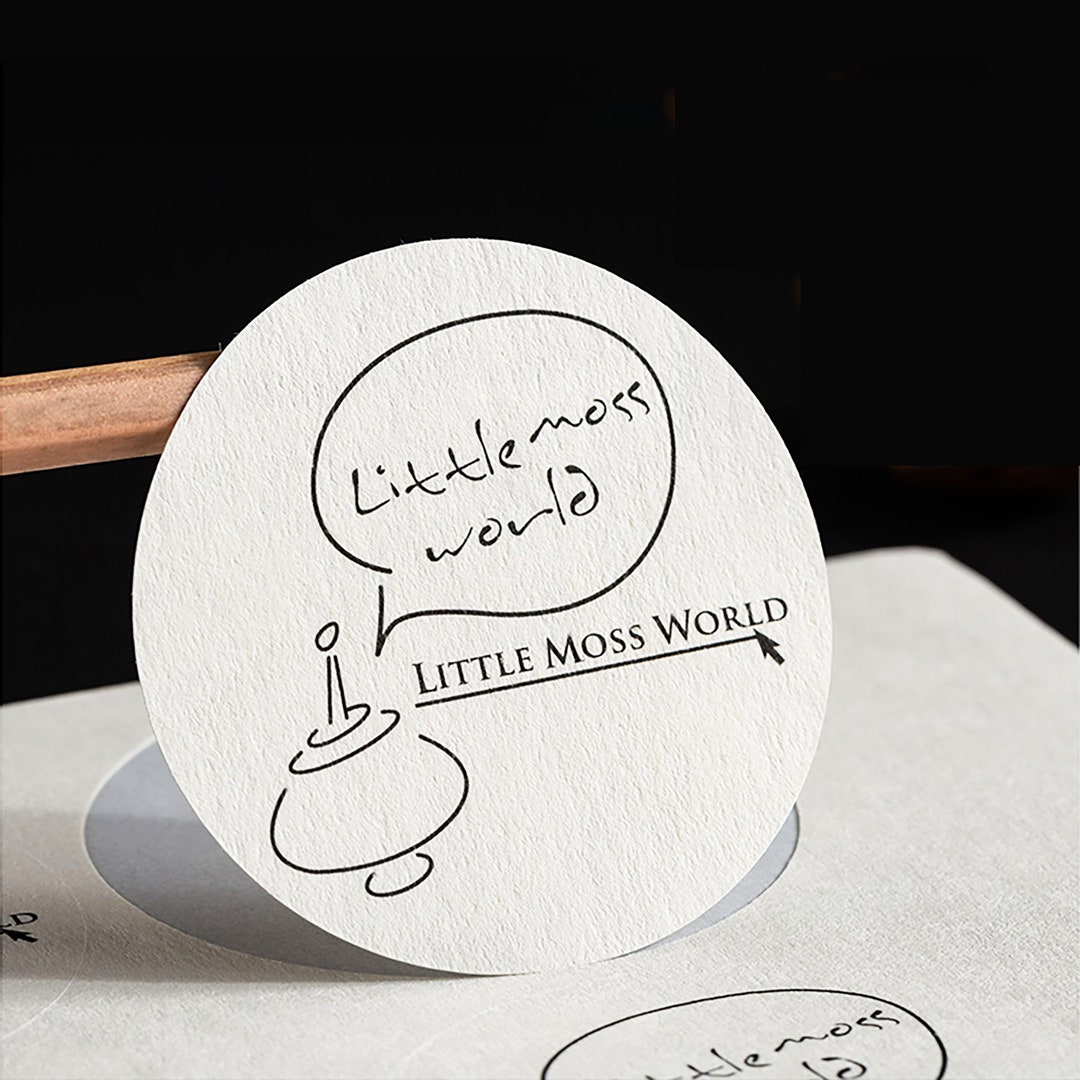 Little moss
world
LITTLE MOSS WORLD
LD
Little moss
ld